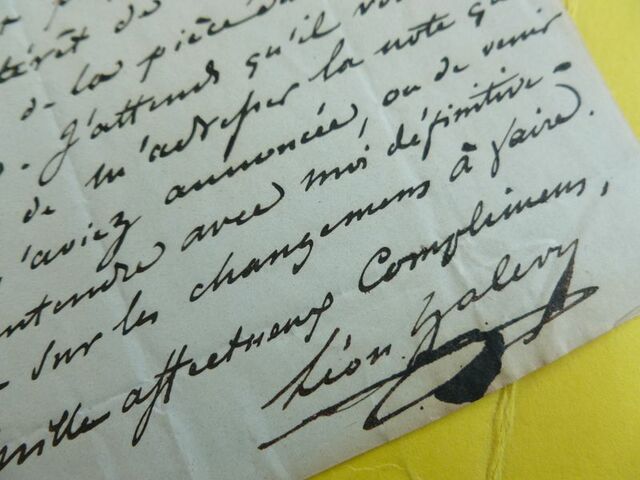 térêt de
de la pièce
. J'attends qu'il vo
de m'adresser la note qu
m'aviez annoncée, ou de venir
entendre avec moi définitive-
sur les changemens à faire.
mille affectueux Complimens,
Léon Halévy